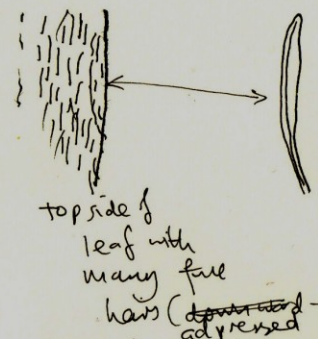 top side of
leaf with
many fine
hairs (downward-
adpressed